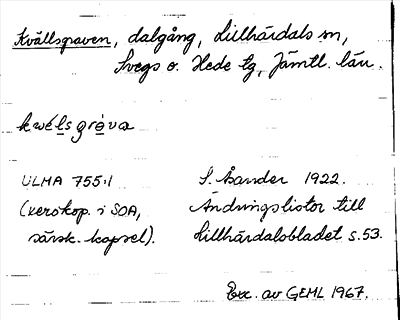 Kvällsgraven, dalgång, Lillhärdals sn,
Svegs o. Hede tg, Jämtl. län.
kwélsgrǝva
ULMA 755:1
S. Åsander 1922.
(xerokop. i SOA,
Ändringslistor till
särsk. kapsel).
Lillhärdalsbladet s.53.
Exc. av GEML 1967.